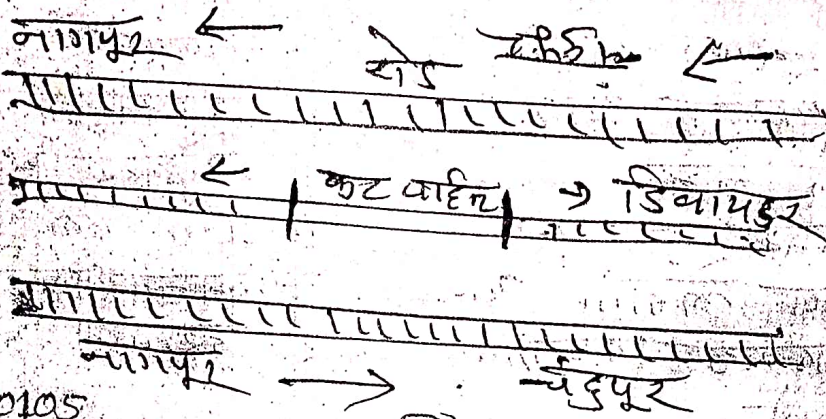 नागपूर ←
रोड ←
← कट पाहिजे → डिवायडर
नागपूर → चंद्रपूर
0105